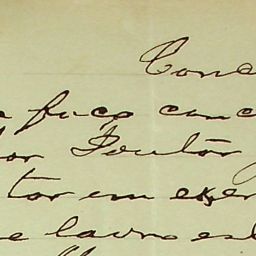 Conc
faço conc
or Doutor
tor em exer
e lavro est